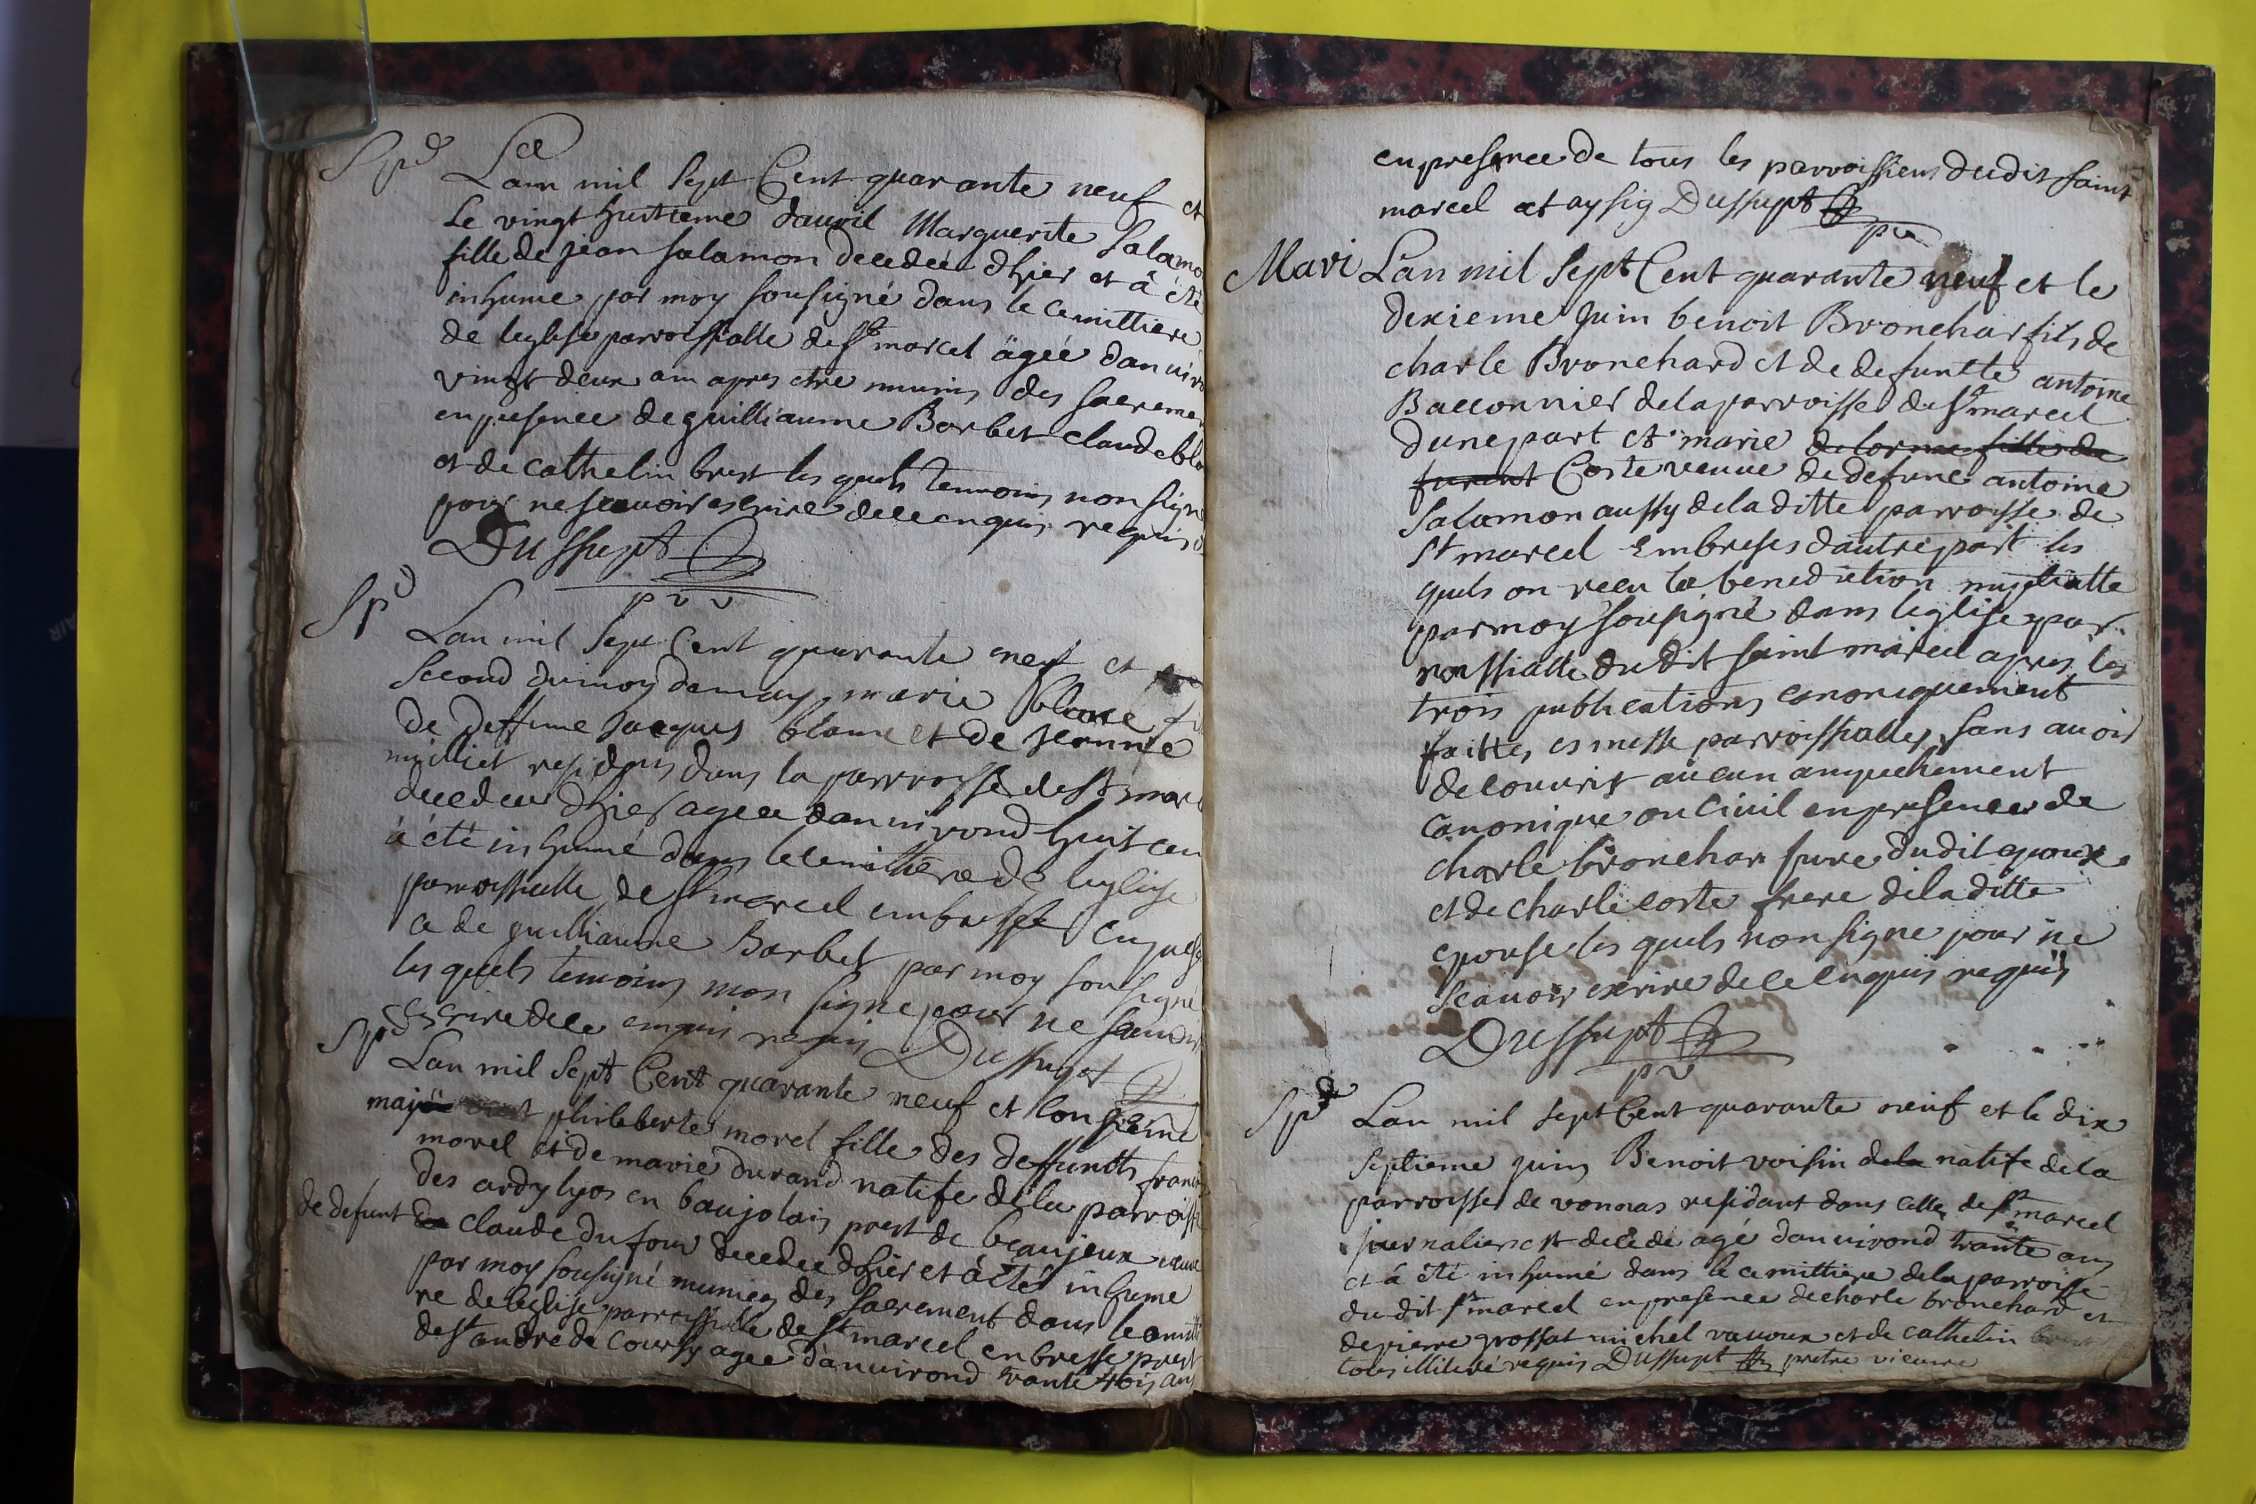 Spre
Lan mil sept Cent quarante neuf et
Le vingt huitieme dauril Marguerite Salamo
fille de jean salamon decedée dhier et â été
inhume par moy sousigné dans le cemittiere
de leglise parroissialle de st marcel âgée danuiro
vingt deux an apres etre munis des sacremen
en presence de guilliaume Borbet claude bla
et de cathelin brest les quels temoins non signe
pour ne scauoir escrire de ce enquis requis
Dussupt
p v
Sp
Lan mil sept Cent quarante neuf et
second du moy de may marie blanc fi
de deffunc Jacques blanc et de jeanne
milliet residens dans la parroisse de st marc
decedeé dhier ageé danuirond huit an
à été inhumé dans le cemittiere de leglise
parroissialle de st marcel en bresse en prese
ce de guilliaume Barbet par moy sousigné
les quels temoins non signe pour ne scauoir
escrire de ce enquis requis Dussupt
Sp
Lan mil sept Cent quarante neuf et lonzieme
may philiberte morel fille des deffuntts franc
morel et de marie durand natife de la parroisse
des ardylyos en baujolais prest de beaujeux veuue
de defunt claude dufour decedee dhier et â été inhume
par moy sousigné munies des sacrement dans le cemitti
re de leglise parroissialle de st marcel en bresse prest
de st andre de Courcy agee danuirond trante trois ans
en presence de tous les parroissiens dudit saint
marcel et ay sig Dussupt
pv
Mari
Lan mil sept Cent quarante neuf et le
dixieme juin benoit Bronchar fils de
charle Bronchard et de defuntte antoine
Bacconnier de la parroisse de st marcel
dune part et marie de lorme fille de
furent Coste veuue de defunc antoine
Salamon aussy de la ditte parroisse de
st marcel Embreses dautre part les
quels on receu la benediction nuptialle
par moy sousigné dans leglise par
roissialle du dit saint marcel apres les
trois publications canoniquement
faittes es messe parroissialles sans auoir
decouurir aucun ampechement
canonique ou Ciuil en presence de
charle bronchar pere du dit epoux
et de charle coste frere de la ditte
epouse les quels non signe pour ne
scauoir escrire de ce enquis requis
Dussupt
p v
Sp
Lan mil sept Cent quarante neuf et le dix
septieme juin Benoit voisin de la natife de la
parroisse de vonnas residant dans celle de st marcel
journalier est decede agé danuirond trante ans
et â été inhumé dans le cemittiere de la parroisse
du dit st marcel en presence de charle bronchard et
de pierre grossat michel vauoux et de cathelin brest
tous illiteré requis Dussupt pretre vicaire